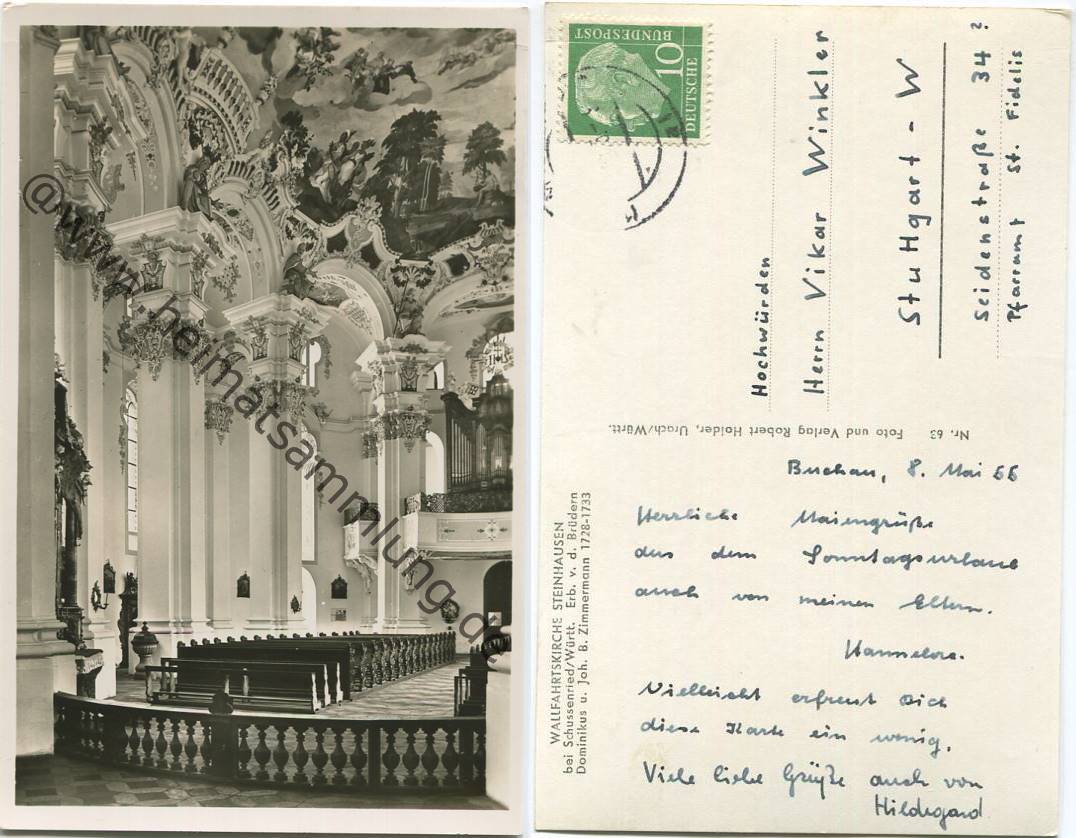 @www.heimatsammlung.de
DEUTSCHE
BUNDESPOST
10
Hochwürden
Herrn Vikar Winkler
Stuttgart-W
Seidenstraße 34?
Pfarramt St. Fidelis
Nr. 63 Foto und Verlag Robert Holder, Urach/Württ.
WALLFAHRTSKIRCHE STEINHAUSEN
bei Schussenried/Württ. Erb. v. d. Brüdern
Dominikus u. Joh. B. Zimmermann 1728-1733
Buchau, 8. Mai 66
Herrliche Maiengrüße
aus dem Sonntagsurlaub
auch von meinen Eltern.
Hannelore.
Vielleicht erfreut Dich
diese Karte ein wenig.
Viele liebe Grüße auch von
Hildegard